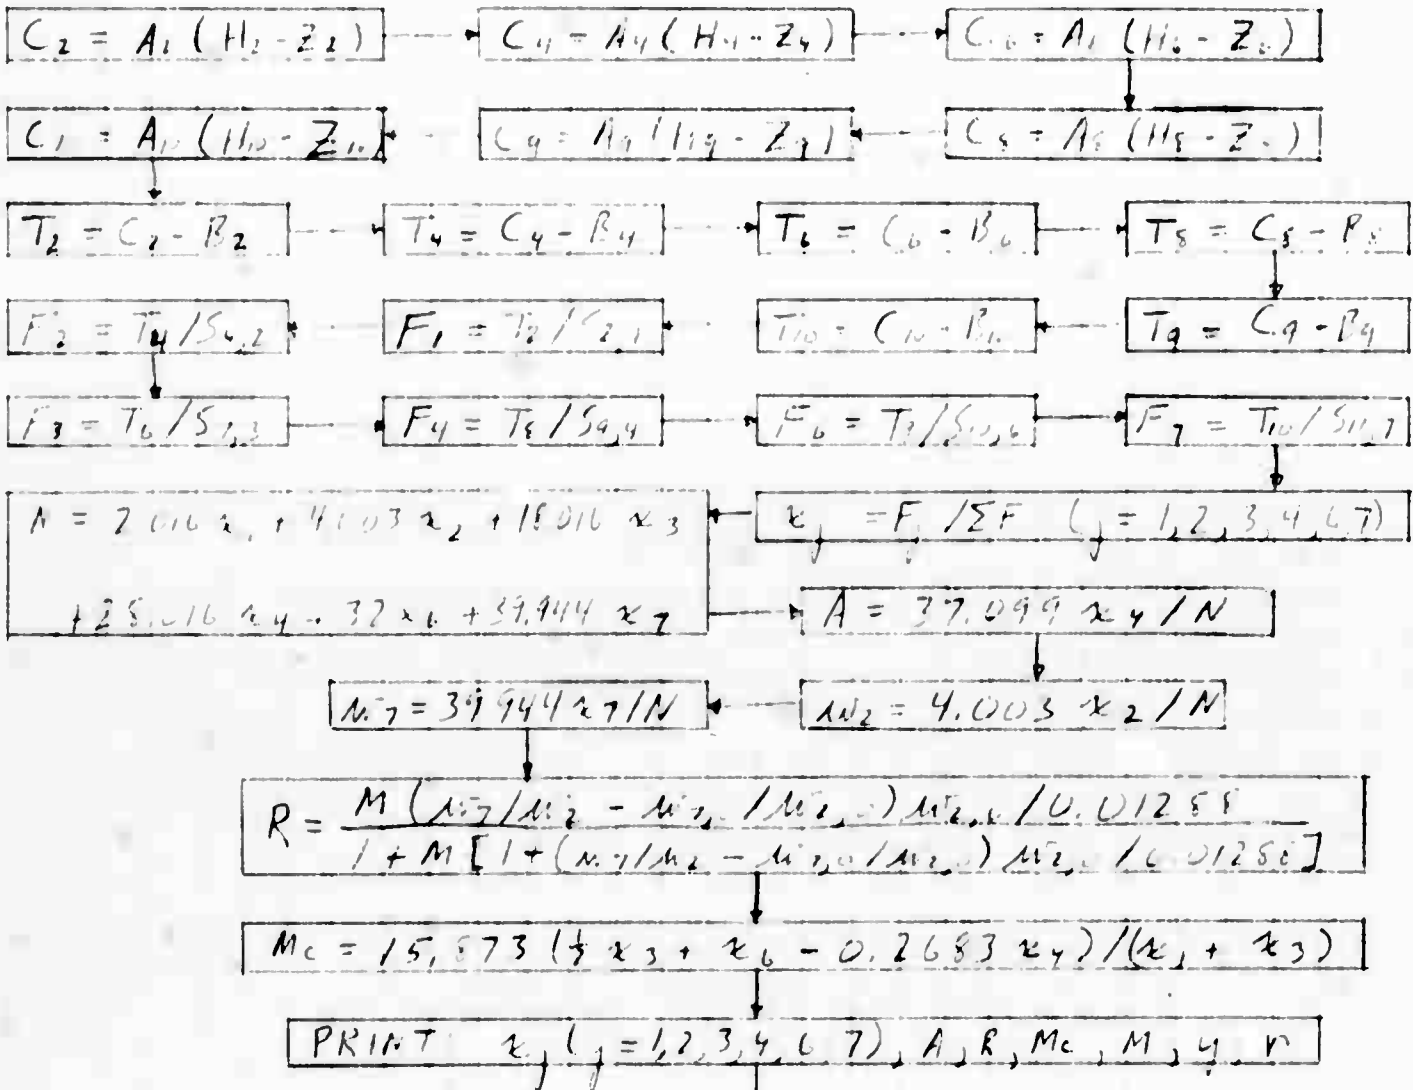 C₂ = A₂ (H₂ - Z₂) C₄ = A₄ (H₄ - Z₄) C₆ = A₆ (H₆ - Z₆)
C₁ = A₁₀ (H₁₀ - Z₁₀) C₉ = A₉ (H₉ - Z₉) C₈ = A₈ (H₈ - Z₈)
T₂ = C₂ - B₂ T₄ = C₄ - B₄ T₆ = C₆ - B₆ T₈ = C₈ - B₈
F₂ = T₄/S₄,₂ F₁ = T₂/S₂,₁ T₁₀ = C₁₀ - B₁₀ T₉ = C₉ - B₉
F₃ = T₆ / F₄ = T₈/S₉,₄ F₆ = T₉/ F₇ = T₁₀/S₁₁,₇
N = 2.016 x₁ + 4.003 x₂ + 18.016 x₃ xⱼ = Fⱼ/ΣF (j = 1,2,3,4,6,7)
+ 28.016 x₄ + 32 x₆ + 39.944 x₇ A = 37.099 x₄/N
w₇ = 39.944 x₇/N w₂ = 4.003 x₂/N
R = M (w₇/w₂ - w₇,₀/w₂,₀) w₂,₀ / 0.01288
1 + M [1 + (w₇/w₂ - w₇,₀/w₂,₀) w₂,₀ / 0.01288]
Mc = 15.873 (½ x₃ + x₆ - 0.2683 x₄)/(x₁ + x₃)
PRINT xⱼ (j = 1,2,3,4,6,7), A, R, Mc, M, y, r